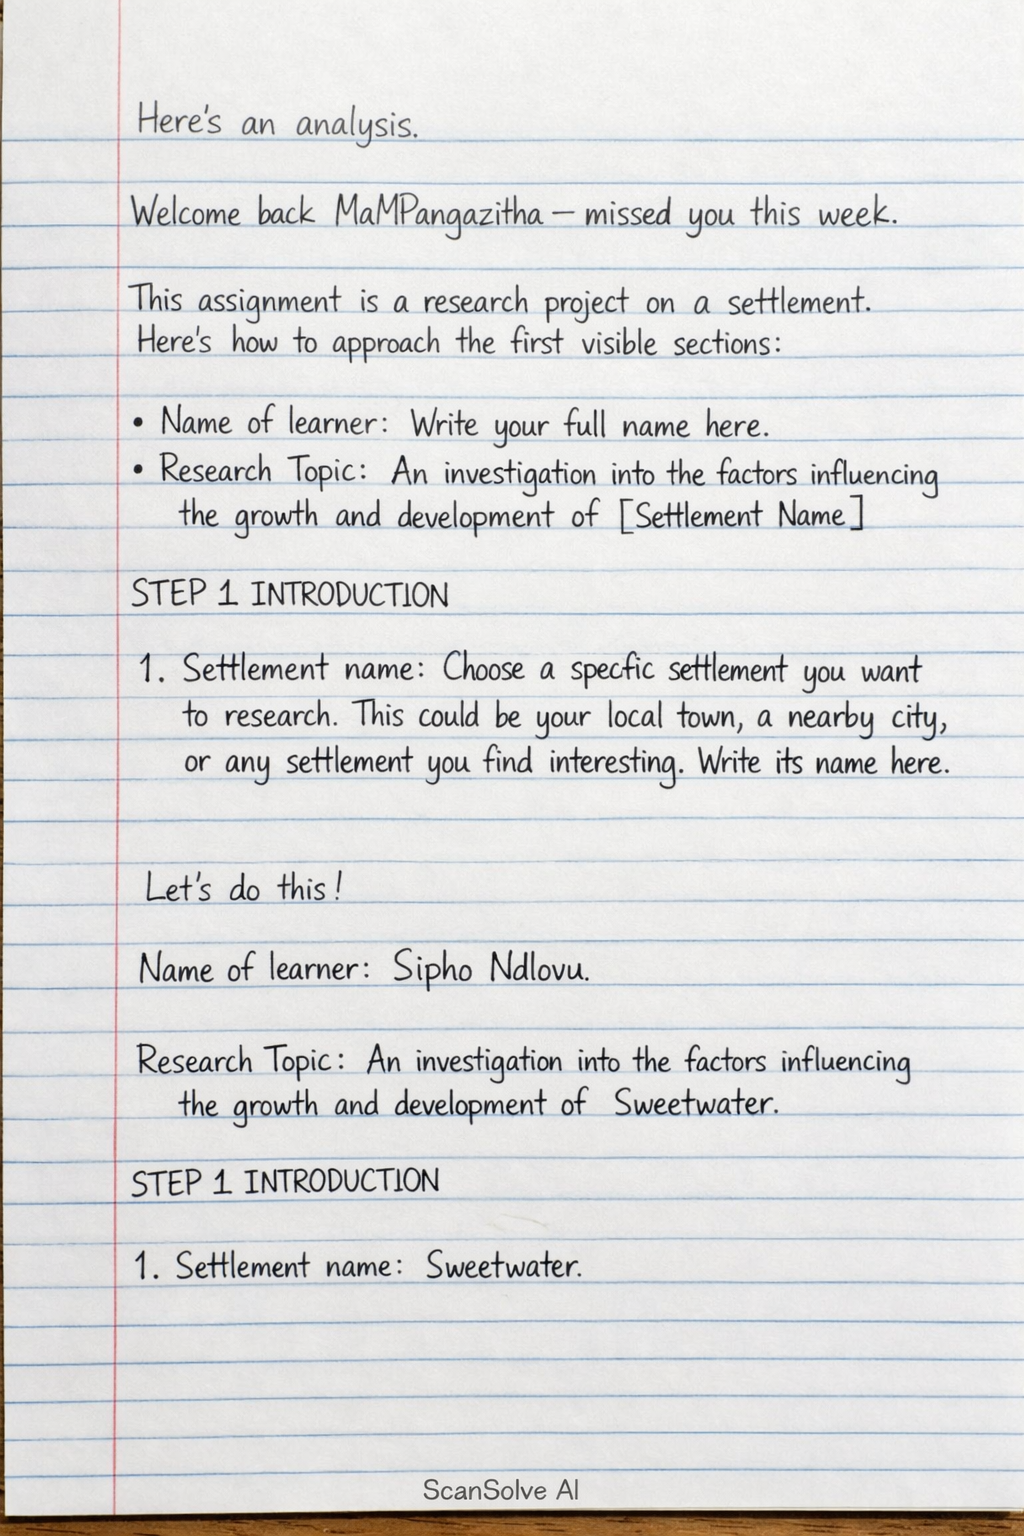 Here's an analysis.
Welcome back MaMPangazitha – missed you this week.
This assignment is a research project on a settlement.
Here's how to approach the first visible sections:
• Name of learner: Write your full name here.
• Research Topic: An investigation into the factors influencing
the growth and development of [Settlement Name]
STEP 1 INTRODUCTION
1. Settlement name: Choose a specfic settlement you want
to research. This could be your local town, a nearby city,
or any settlement you find interesting. Write its name here.
Let's do this!
Name of learner: Sipho Ndlovu.
Research Topic: An investigation into the factors influencing
the growth and development of Sweetwater.
STEP 1 INTRODUCTION
1. Settlement name: Sweetwater.
ScanSolve AI